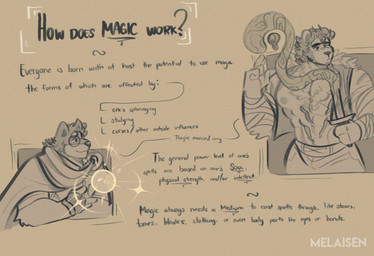 HOW DOES MAGIC WORK?
~
Everyone is born with at least the potential to use magic
the forms of which are affected by:
L. one's upbringing
L. studying
L. curses/other outside influences
The general power level of one's
spells are based on one's Soul,
physical strength, and/or intellect.
~
Magic always needs a Medium to cast spells through, like staves,
tomes, blades, clothing, or even body parts like eyes or hands.
MELAISEN